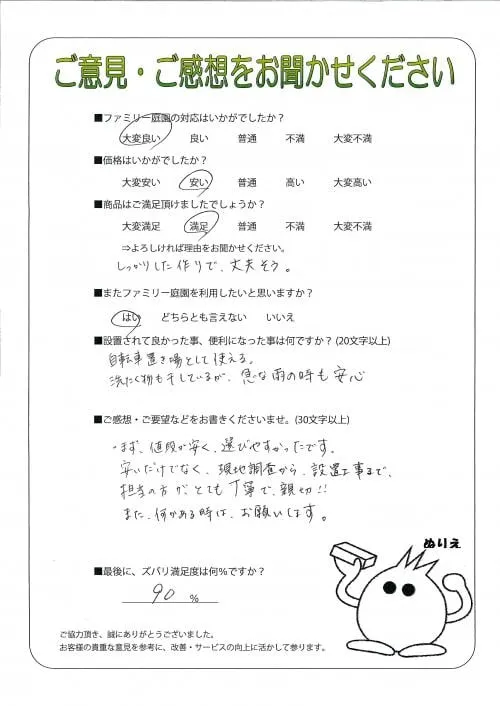 ご意見・ご感想をお聞かせください
■ファミリー庭園の対応はいかがでしたか？
大変良い 良い 普通 不満 大変不満
■価格はいかがでしたか？
大変安い 安い 普通 高い 大変高い
■商品はご満足頂けましたでしょうか？
大変満足 満足 普通 不満 大変不満
⇒よろしければ理由をお聞かせください。
しっかりした作りで、丈夫そう。
■またファミリー庭園を利用したいと思いますか？
はい どちらとも言えない いいえ
■設置されて良かった事、便利になった事は何ですか？(20文字以上)
自転車置き場として使える。
洗たく物も干しているが、急な雨の時も安心
■ご感想・ご要望などをお書きくださいませ。(30文字以上)
・まず、値段が安く、選びやすかったです。
安いだけでなく、現地調査から、設置工事まで、
担当の方が、とても丁寧で、親切!!
また、何かある時は、お願いします。
ぬりえ
■最後に、ズバリ満足度は何％ですか？
90 ％
ご協力頂き、誠にありがとうございました。
お客様の貴重な意見を参考に、改善・サービスの向上に活かして参ります。